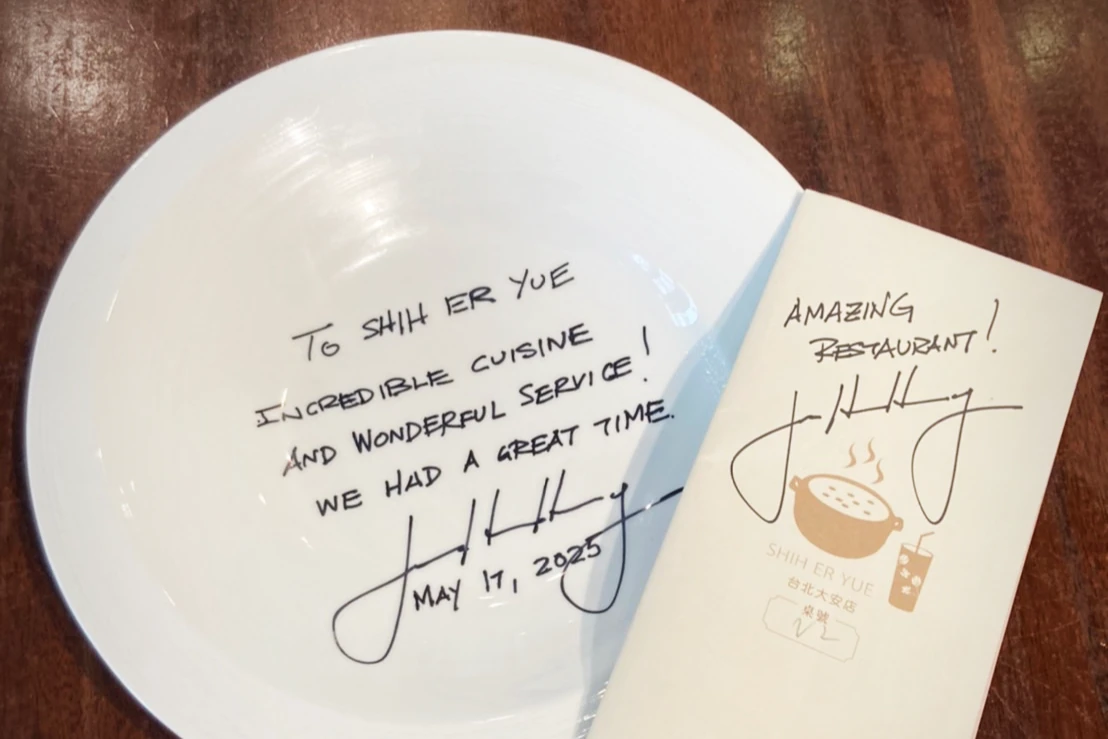 TO SHIH ER YUE
INCREDIBLE CUISINE
AND WONDERFUL SERVICE!
WE HAD A GREAT TIME.
MAY 17, 2025
AMAZING
RESTAURANT!
SHIH ER YUE
台北大安店
桌號